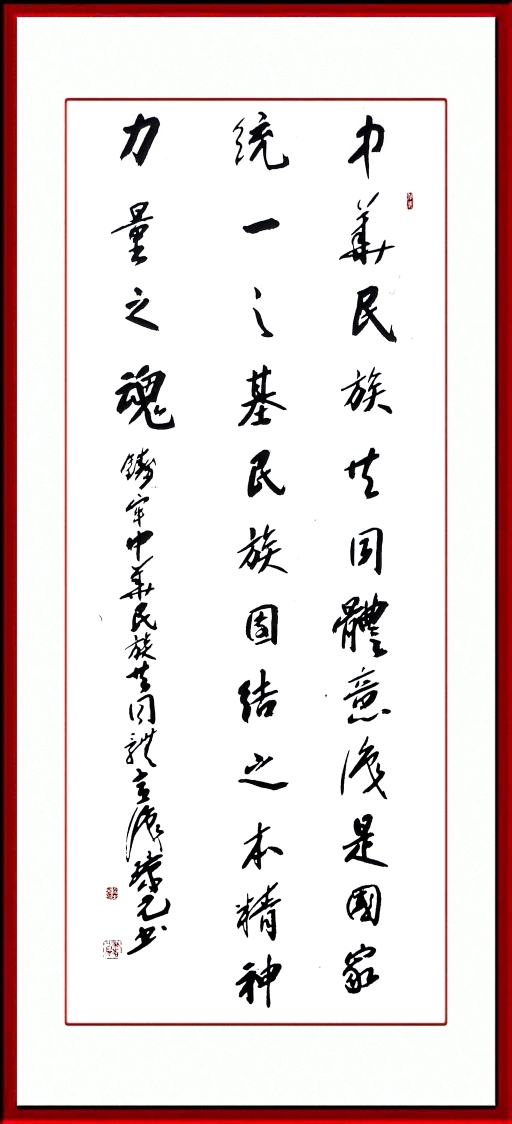 中華民族共同體意識是國家
統一之基民族團結之本精神
力量之魂
鑄牢中華民族共同體意識 元书